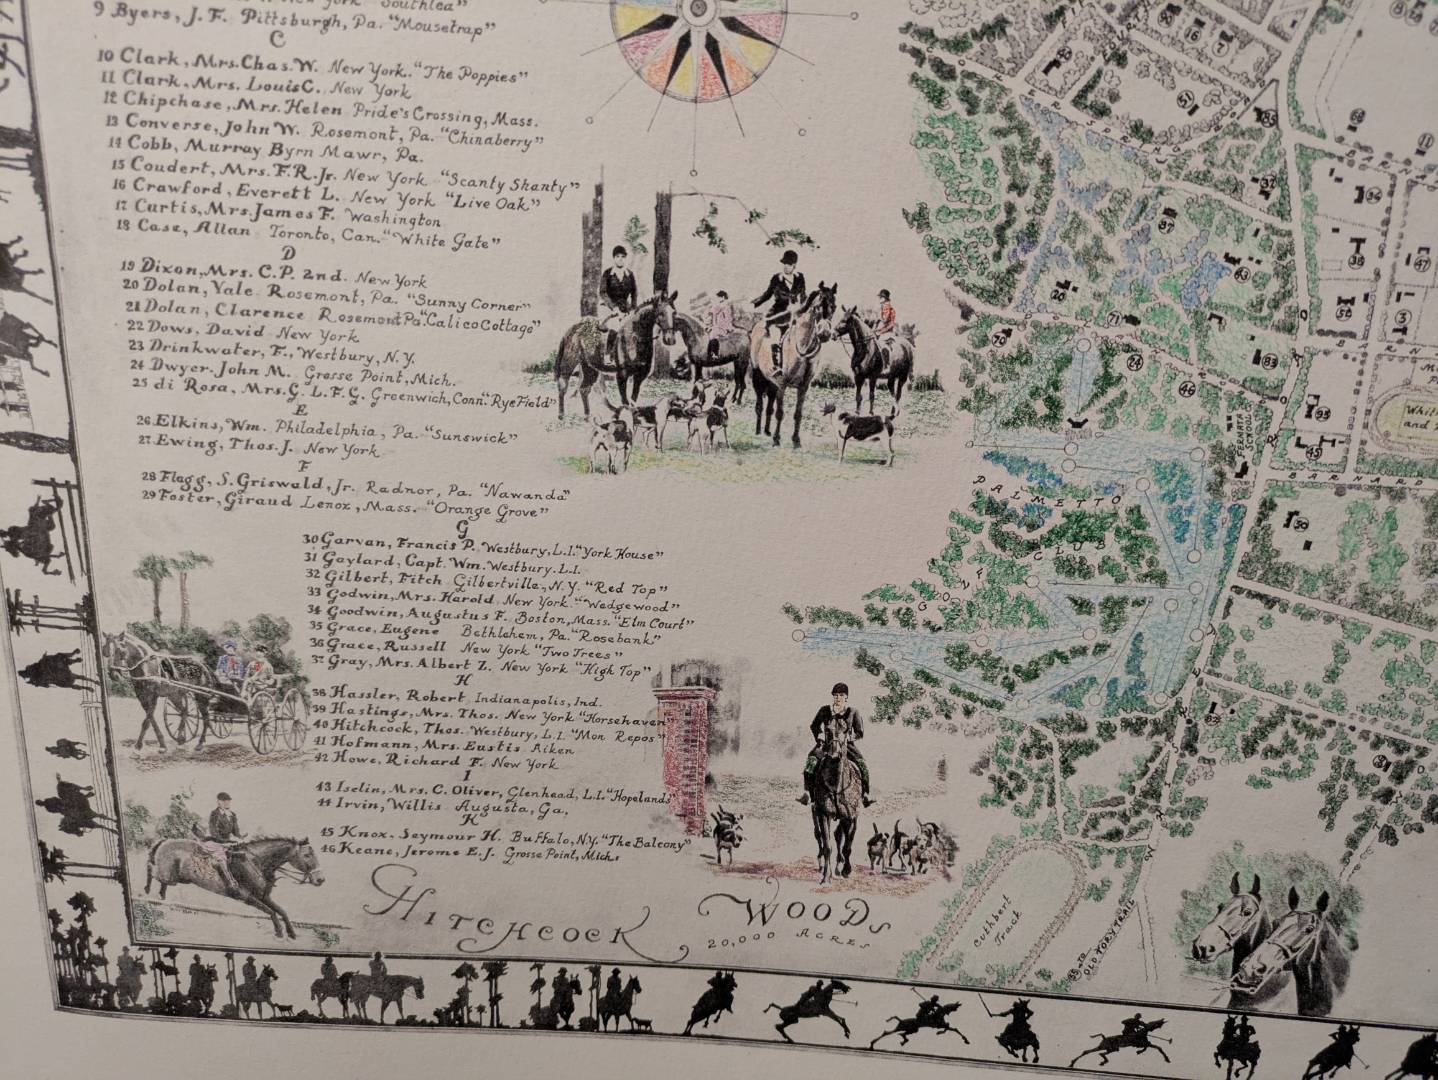 "Southlea"
9 Byers, J. F. Pittsburgh, Pa. "Mousetrap"
C
10 Clark, Mrs. Chas. W. New York. "The Poppies"
11 Clark, Mrs. Louis C. New York
12 Chipchase, Mrs. Helen Pride's Crossing, Mass.
13 Converse, John W. Rosemont, Pa. "Chinaberry"
14 Cobb, Murray Byrn Mawr, Pa.
15 Coudert, Mrs. F. R. Jr. New York "Scanty Shanty"
16 Crawford, Everett L. New York "Live Oak"
17 Curtis, Mrs. James F. Washington
18 Case, Allan Toronto, Can. "White Gate"
D
19 Dixon, Mrs. C. P. 2nd. New York
20 Dolan, Yale Rosemont, Pa. "Sunny Corner"
21 Dolan, Clarence Rosemont Pa "Calico Cottage"
22 Dows, David New York
23 Drinkwater, F., Westbury, N.Y.
24 Dwyer, John M. Grosse Point, Mich.
25 di Rosa, Mrs. G. L. F. G. Greenwich, Conn. "Rye Field"
E
26 Elkins, Wm. Philadelphia, Pa. "Sunswick"
27 Ewing, Thos. J. New York
F
28 Flagg, S. Griswald, Jr. Radnor, Pa. "Nawanda"
29 Foster, Giraud Lenox, Mass. "Orange Grove"
G
30 Garvan, Francis P. Westbury, L.I. "York House"
31 Gaylard, Capt. Wm. Westbury. L.I.
32 Gilbert, Fitch Gilbertville, N.Y. "Red Top"
33 Godwin, Mrs. Harold New York. "Wedgewood"
34 Goodwin, Augustus F. Boston, Mass. "Elm Court"
35 Grace, Eugene Bethlehem, Pa. "Rosebank"
36 Grace, Russell New York "Two Trees"
37 Gray, Mrs. Albert Z. New York "High Top"
H
38 Hassler, Robert Indianapolis, Ind.
39 Hastings, Mrs. Thos. New York "Horsehaven"
40 Hitchcock, Thos. Westbury, L.I. "Mon Repos"
41 Hofmann, Mrs. Eustis Aiken
42 Howe, Richard F. New York
I
43 Iselin, Mrs. C. Oliver, Glenhead, L.I. "Hopelands"
44 Irvin, Willis Augusta, Ga.
K
45 Knox, Seymour H. Buffalo, N.Y. "The Balcony"
46 Keane, Jerome E. J. Grosse Point, Mich.
HITCHCOCK WOODS
20,000 ACRES
90
16
7
51
37
87
63
20
71
70
24
46
83
34
38
47
52
3
95
45
50
11
BARNARD
FERMATA SCHOOL
PALMETTO
GOLF
CLUB
Cuthbert
Track
TO OLD TORY TRAIL